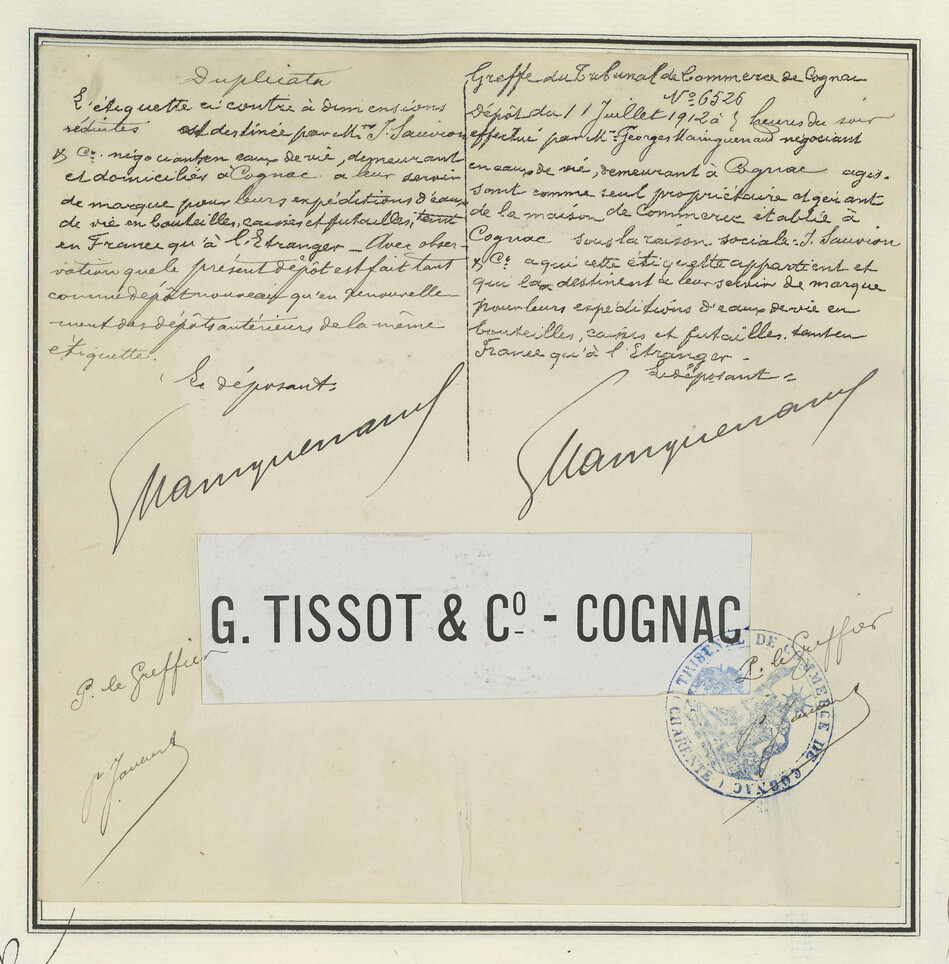 Duplicata
L'étiquette ci contre à dimensions
réduites est destinée par MM. J. Sauvion
& Cie. négociants en eaux de vie, demeurant
et domiciliés à Cognac à leur servir
de marque pour leurs expéditions d'eaux
de vie en bouteilles, caisses et futailles, tant
en France qu'à l'Etranger _ Avec obser-
vation que le présent dépôt est fait tant
comme dépôt nouveau qu'en renouvelle-
ment des dépôts antérieurs de la même
étiquette.
Le déposant.
GMainguenaud
Greffe du Tribunal de Commerce de Cognac
No 6526
Dépôt du 11 Juillet 1912 à 5 heures du soir
effectué par Mr. Georges Mainguenaud négociant
en eaux de vie, demeurant à Cognac agis-
sant comme seul propriétaire et gérant
de la maison de Commerce établie à
Cognac sous la raison sociale: J. Sauvion
& Cie a qui cette étiquette appartient et
qui la destinent a leur servir de marque
pour leurs expéditions d'eaux de vie en
bouteilles, caisses et futailles tant en
France qu'à l'Etranger -
Le déposant =
GMainguenaud
G. TISSOT & Co - COGNAC
P. le Greffier
P. le Greffier
TRIBUNAL DE COMMERCE DE COGNAC (CHARENTE)